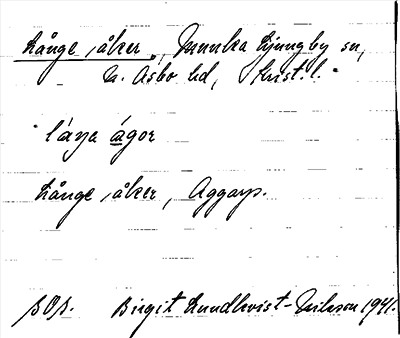 Långe åker, Munka Ljungby sn,
N. Åsbo hd, Krist. l.
láŋa ágor
Långe åker, Aggarp.
SOP. Birgit Lundkvist-Nilsson 1941.